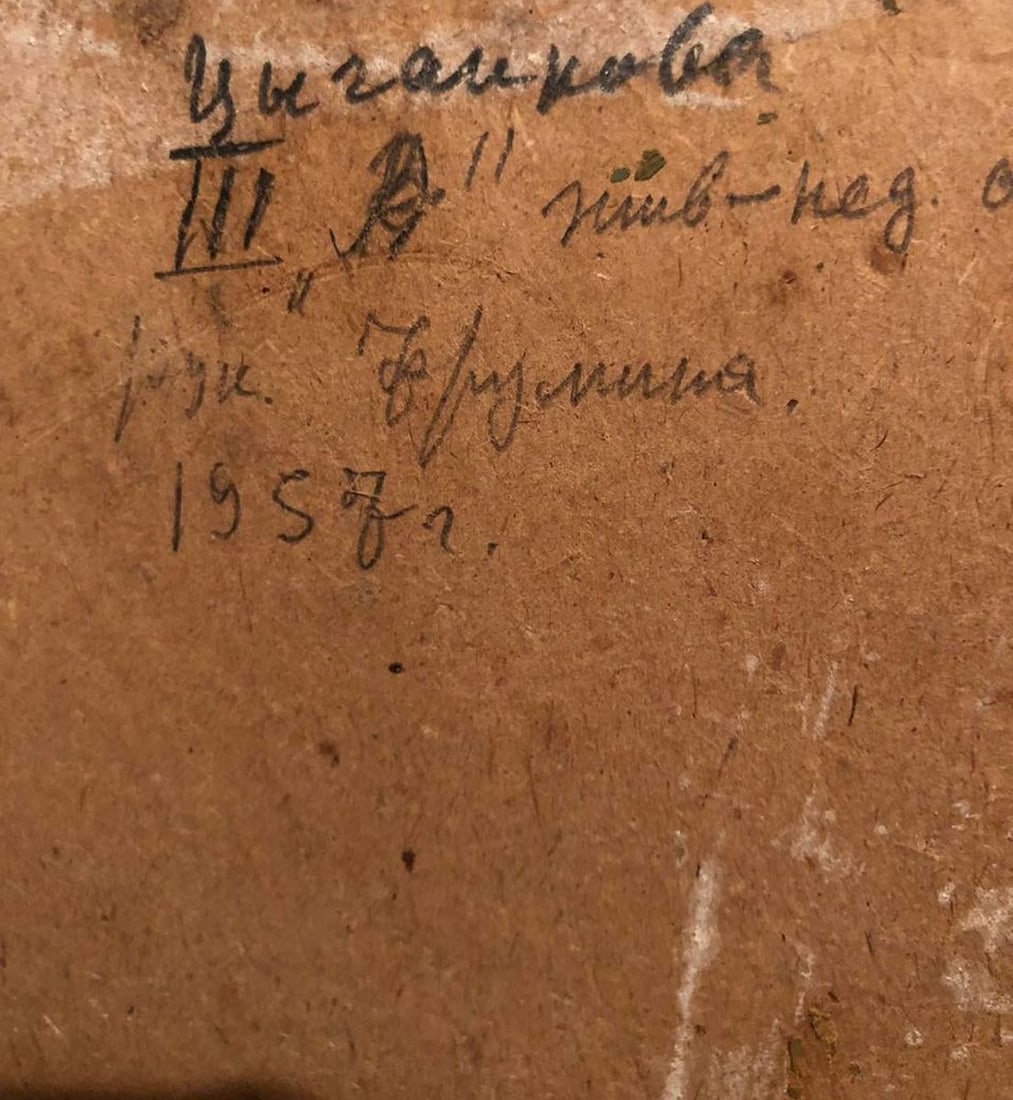 Цыганкова
III „В" жив-пед. о
рук. Фрумина.
1957 г.